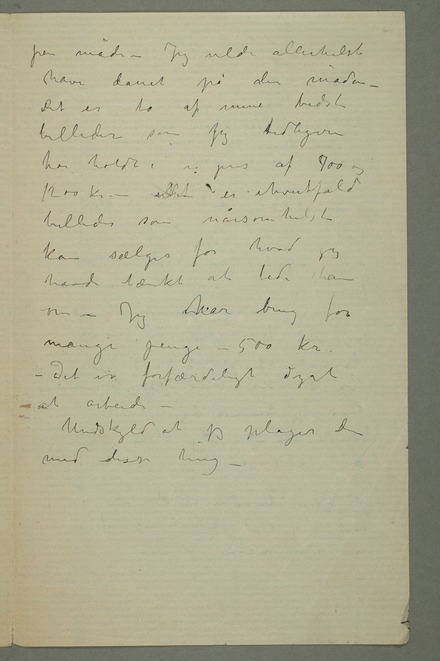 pen måde – Jeg vilde allerhelst
have dannet på den måden –
det er to af mine bedste
billeder som jeg tidligere
har holdt i en pris af 800 og
1200 Kr. – det er ihvertfald
billeder som nårsomhelst
kan sælges for hvad jeg
havde tænkt at lede ham
om – Jeg har brug for
mange penge – 500 Kr.
– Det er forfærdeligt dyrt
at arbeide –
Undskyld at jeg plager dem
med disse ting –